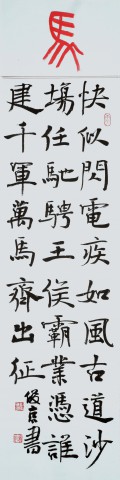 馬
快似閃電疾如風古道沙
場任馳騁王侯霸業憑誰
建千軍萬馬齊出征
俊彥書